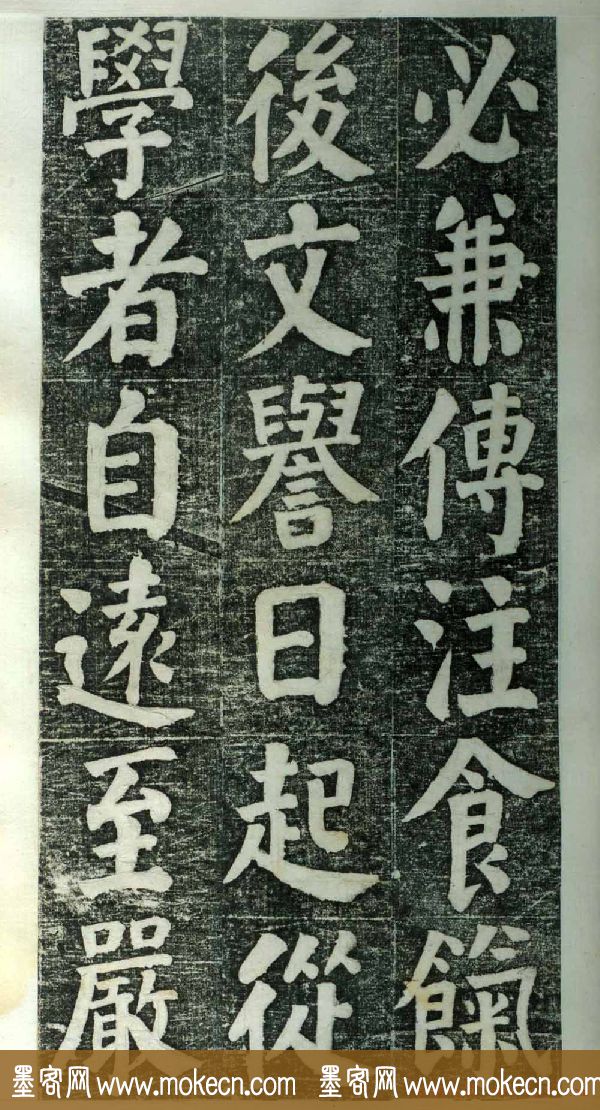 必兼傳注食餼
後文譽日起從
學者自遠至嚴
墨客网 www.mokecn.com 墨客网 www.mokecn.com